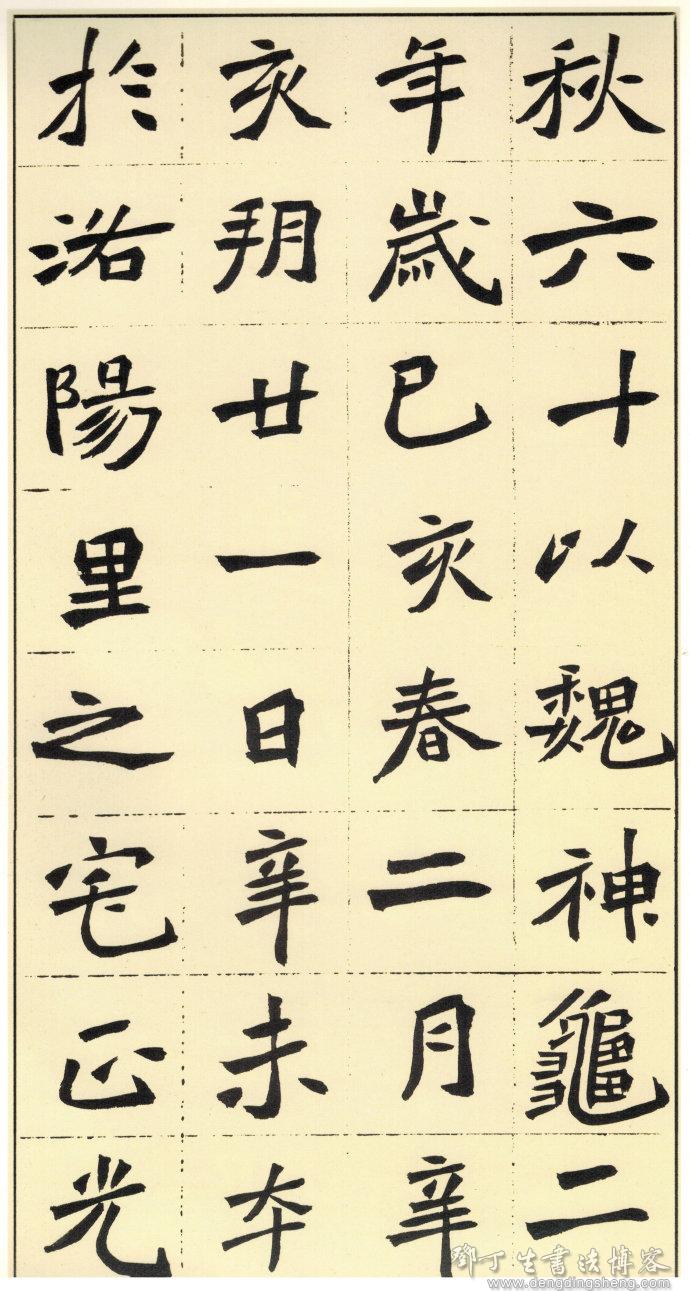 秋六十以魏神龜二
年歲巳亥春二月辛
亥朔廿一日辛未卒
於洛陽里之宅正光
鄧丁生書法博客
www.dengdingsheng.com